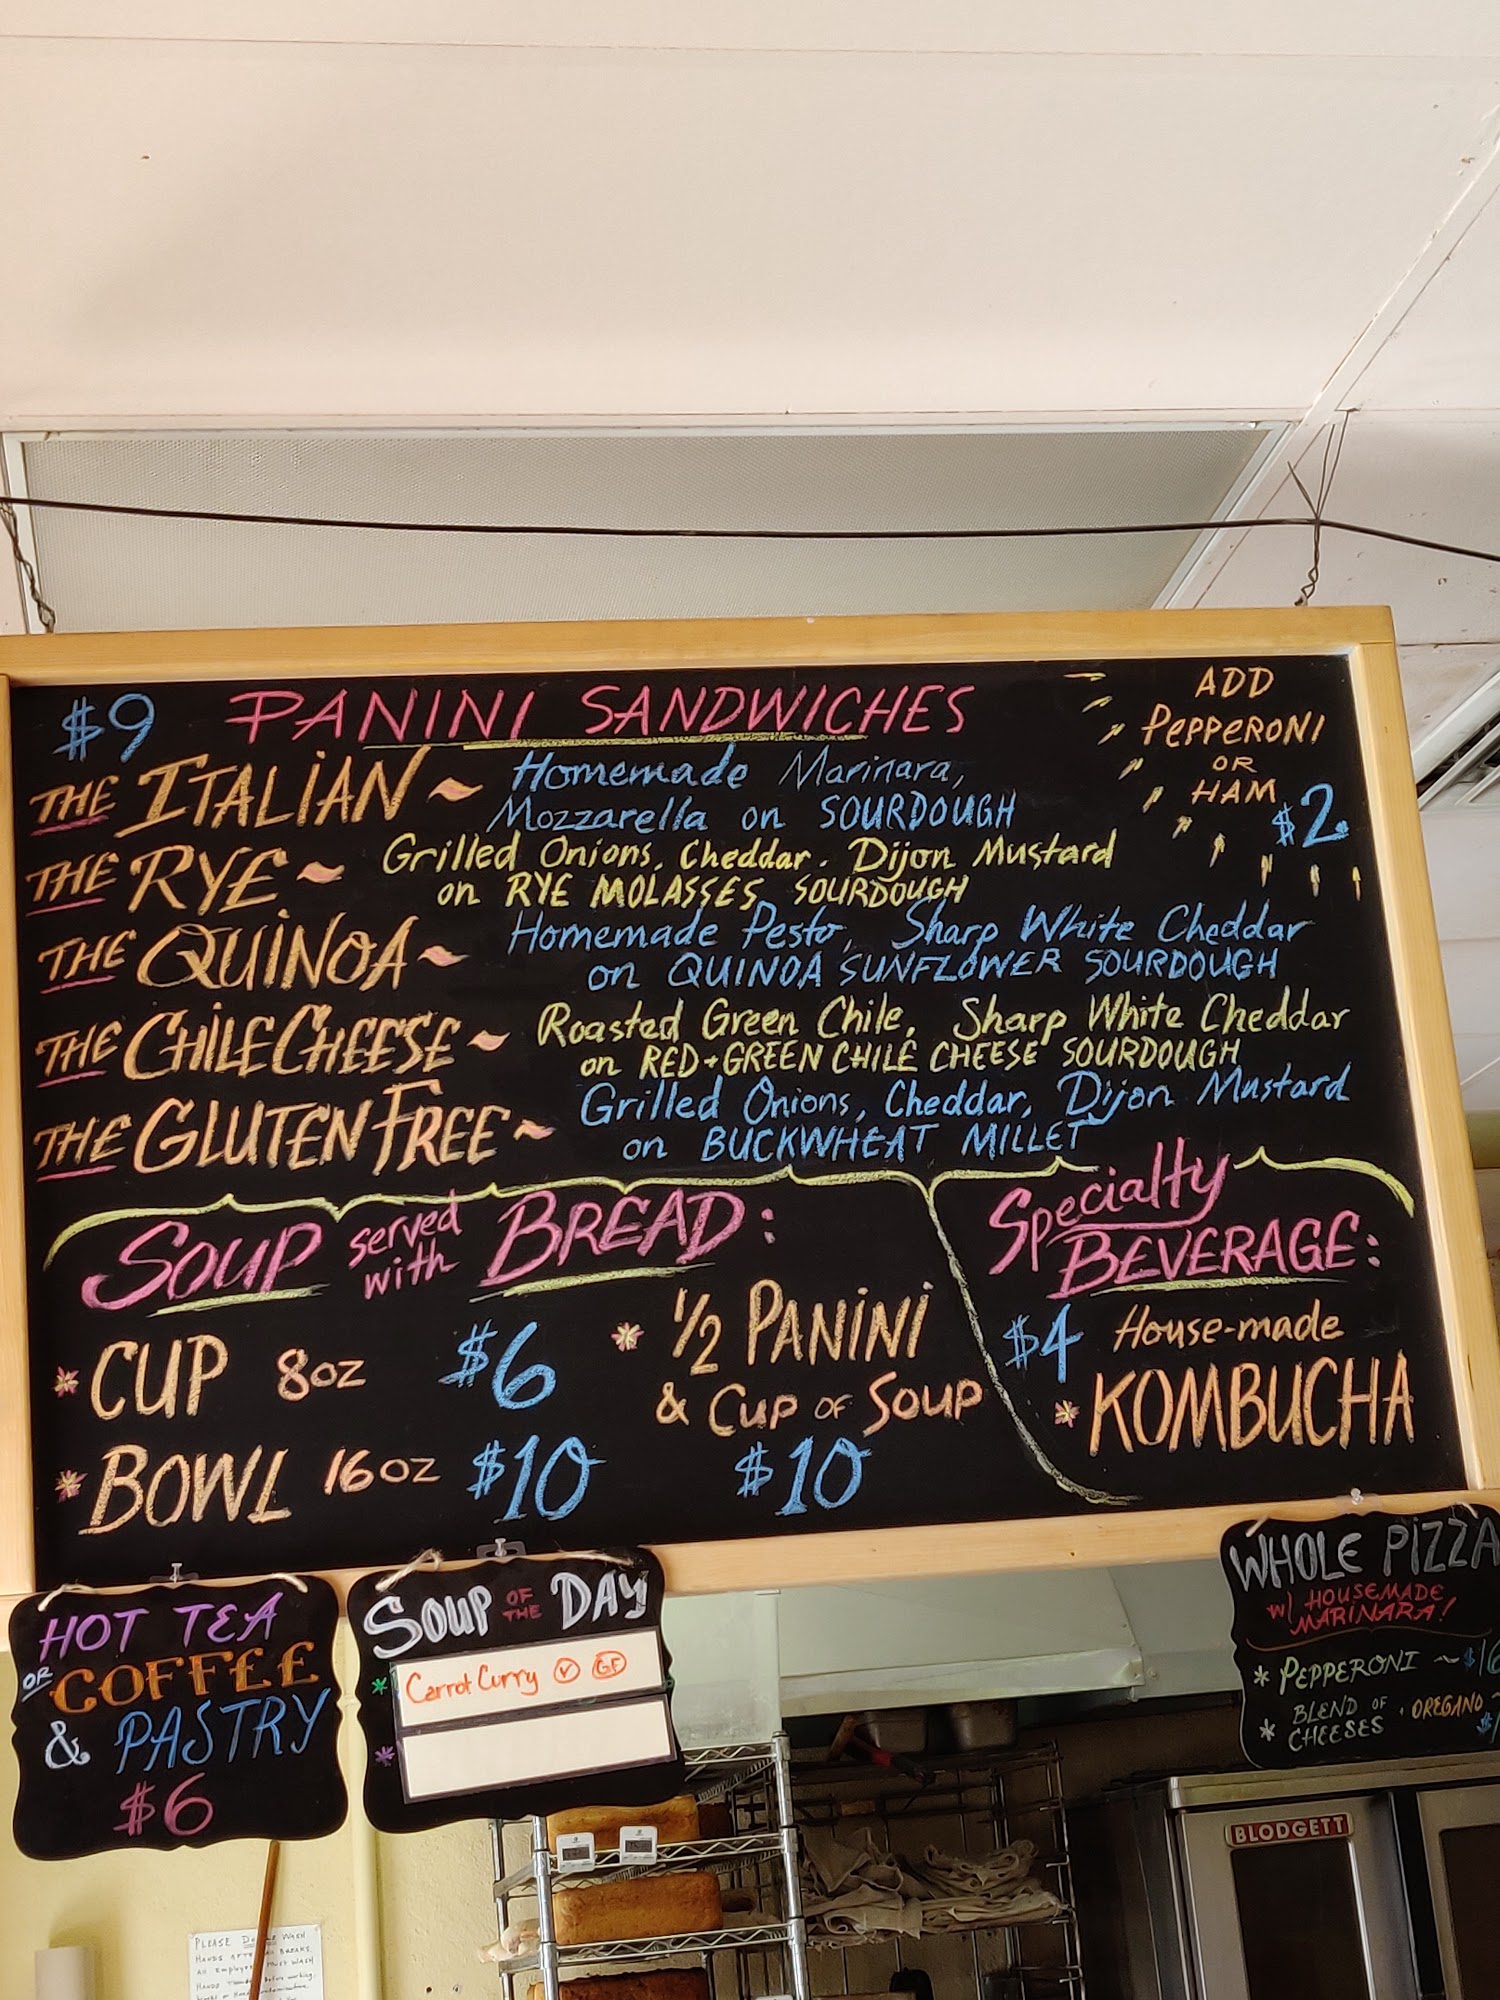 $9 PANINI SANDWICHES
ADD
PEPPERONI
OR
HAM
$2
THE ITALIAN ~ Homemade Marinara,
Mozzarella on SOURDOUGH
THE RYE ~ Grilled Onions, Cheddar, Dijon Mustard
on RYE MOLASSES SOURDOUGH
THE QUINOA ~ Homemade Pesto, Sharp White Cheddar
on QUINOA SUNFLOWER SOURDOUGH
THE CHILE CHEESE ~ Roasted Green Chile, Sharp White Cheddar
on RED + GREEN CHILE CHEESE SOURDOUGH
THE GLUTEN FREE ~ Grilled Onions, Cheddar, Dijon Mustard
on BUCKWHEAT MILLET
SOUP served with BREAD:
* CUP 8oz $6
* BOWL 16oz $10
* 1/2 PANINI
& CUP OF SOUP
$10
Specialty
BEVERAGE:
$4 House-made
* KOMBUCHA
HOT TEA
OR COFFEE
& PASTRY
$6
SOUP OF THE DAY
* Carrot Curry V GF
*
WHOLE PIZZA
W/ HOUSEMADE
MARINARA!
* PEPPERONI ~ $16
* BLEND OF
CHEESES · OREGANO ~
BLODGETT
PLEASE WASH
HANDS